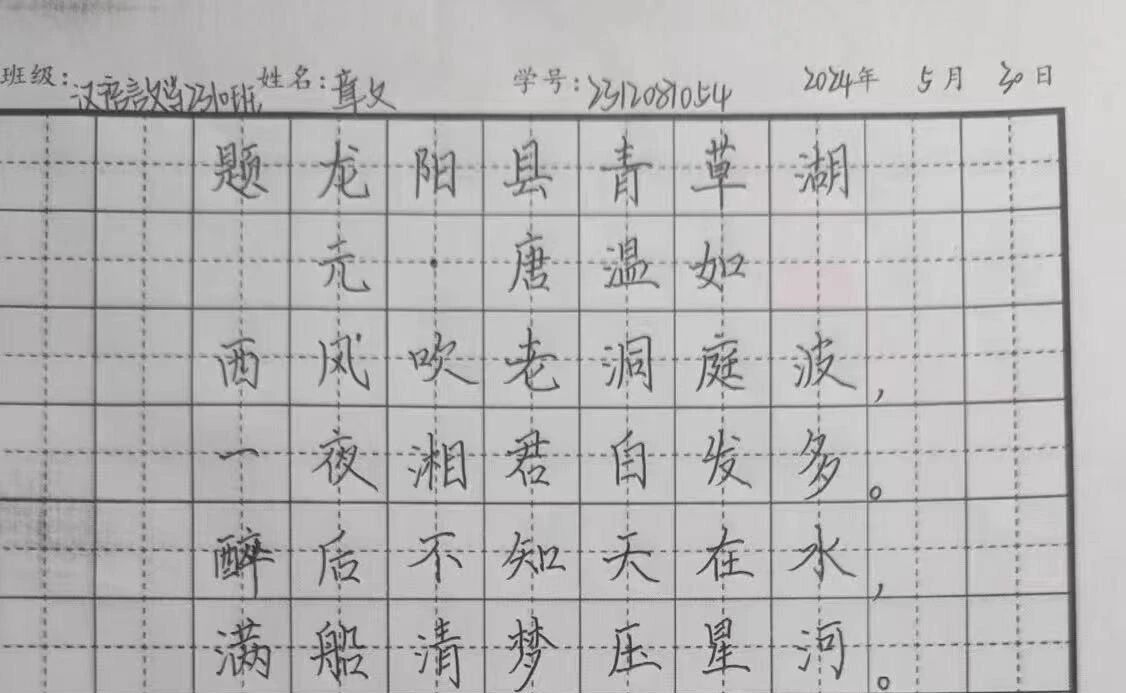 班级:汉语言文学2310班 姓名:章文 学号:2312081054 2024年 5月 30日
题龙阳县青草湖
元·唐温如
西风吹老洞庭波,
一夜湘君白发多。
醉后不知天在水,
满船清梦压星河。